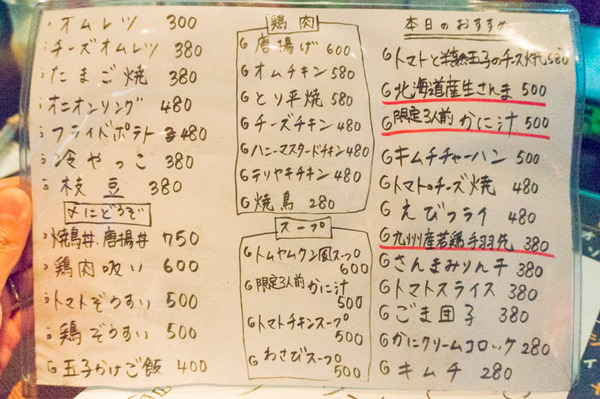 オムレツ 300
チーズオムレツ 380
たまご焼 380
オニオンリング 480
フライドポテト 480
冷やっこ 380
枝豆 380
〆にどうぞ
焼鳥丼、唐揚丼 750
鶏肉吸い 600
トマトぞうすい 500
鶏ぞうすい 500
G 玉子かけご飯 400
鶏肉
G 唐揚げ 600
G オムチキン 580
G とり平焼 580
G チーズチキン 480
G ハニーマスタードチキン 480
G テリヤキチキン 480
G 焼鳥 280
スープ
G トムヤムクン風スープ
600
G 限定3人前 かに汁
500
G トマトチキンスープ
500
G わさびスープ
500
本日のおすすめ
G トマトと半熟玉子のチーズ焼 580
G 北海道産生さんま 500
G 限定3人前 かに汁 500
G キムチチャーハン 500
G トマトのチーズ焼 480
G えびフライ 480
G 九州産若鶏手羽先 380
G さんまみりん干 380
G トマトスライス 380
G ごま団子 380
G かにクリームコロッケ 280
G キムチ 280